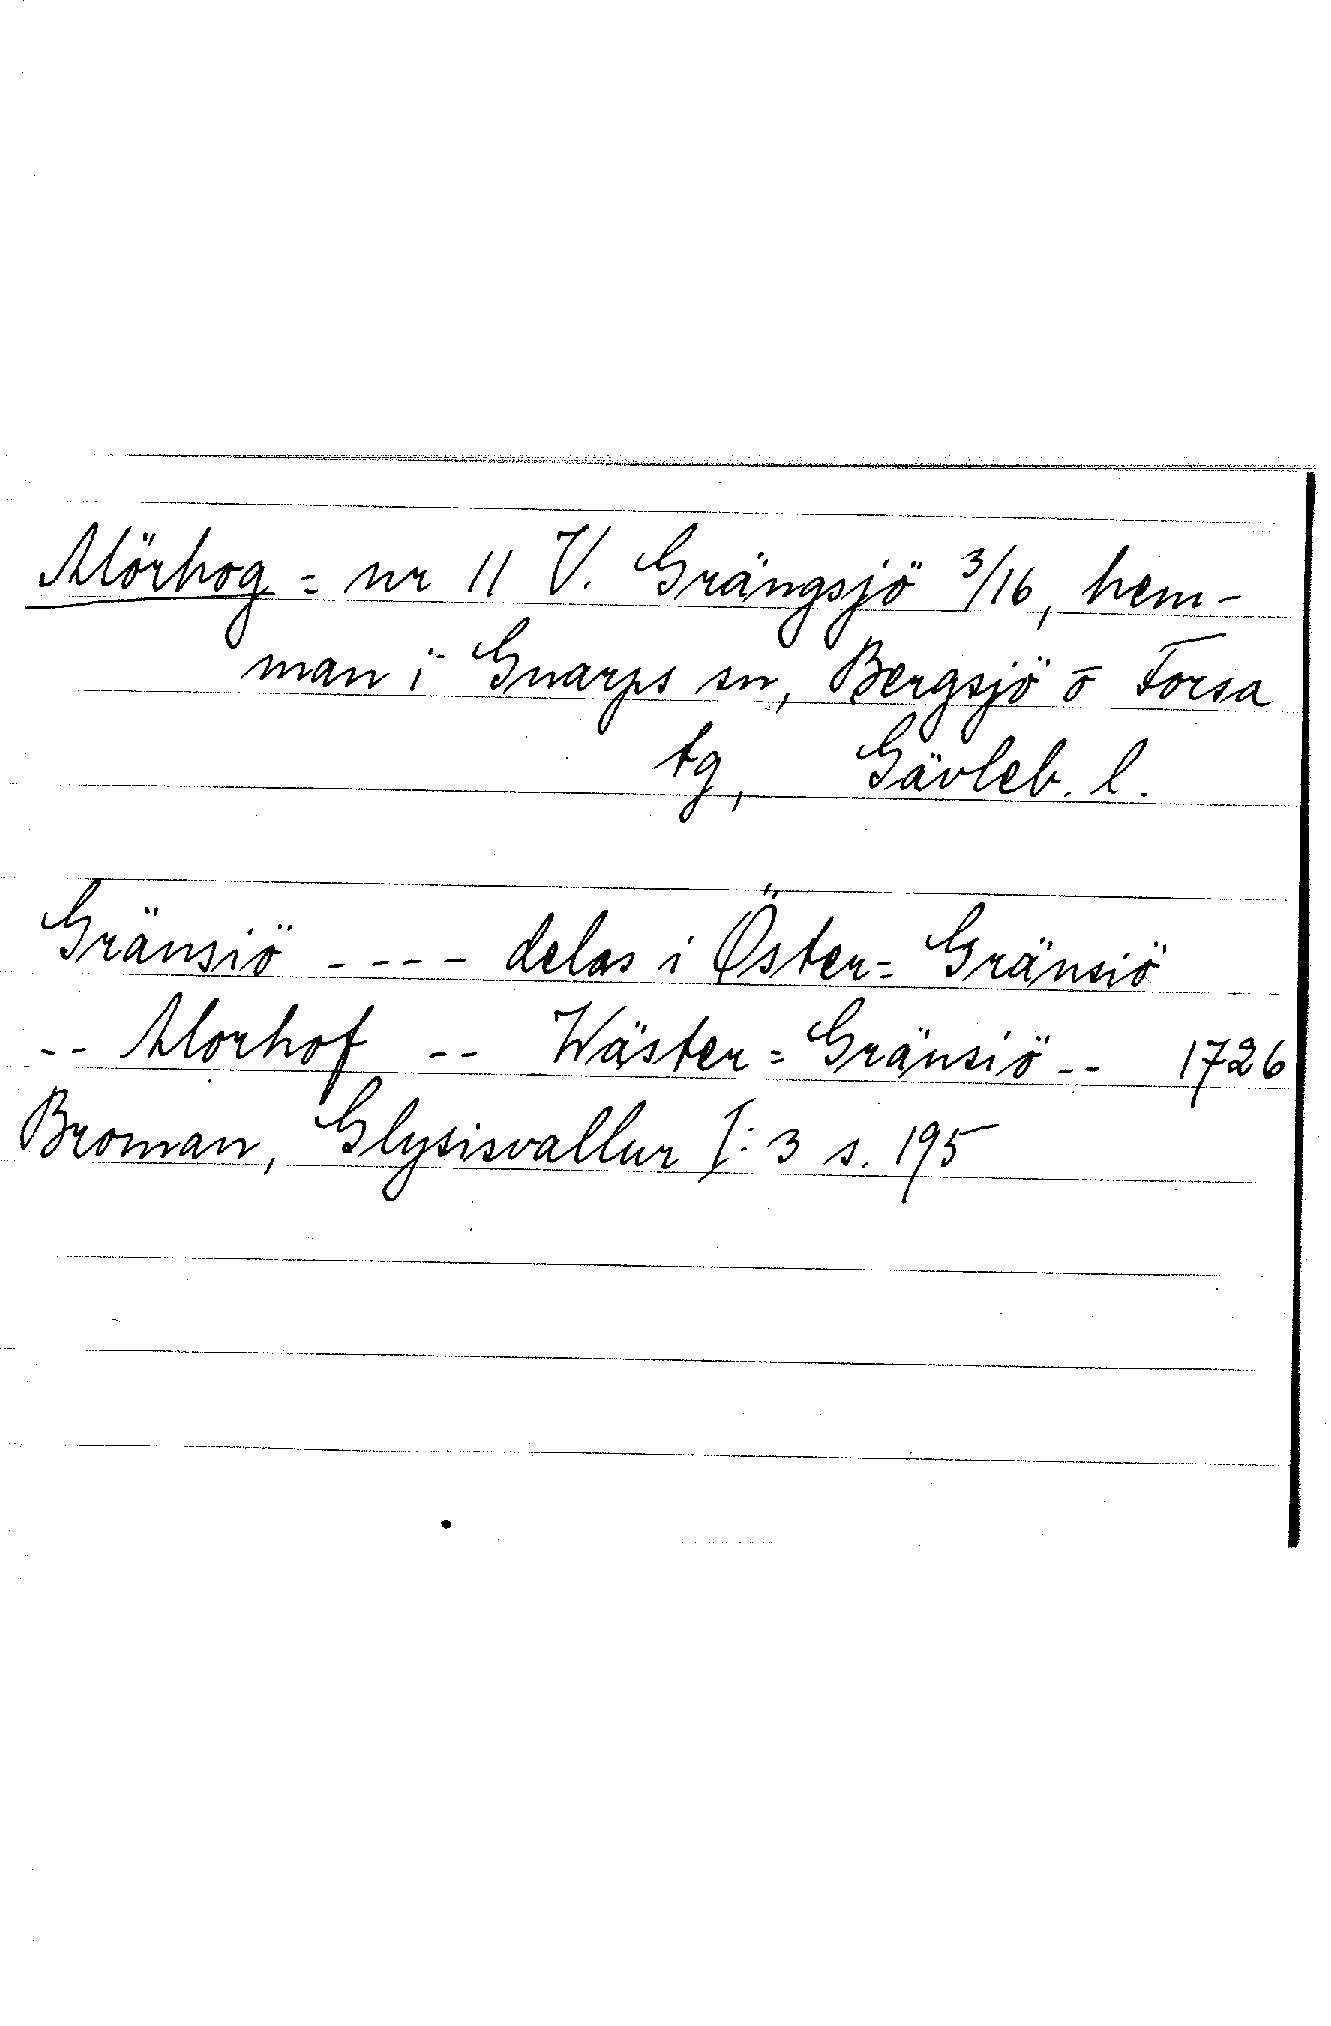 Mörhog = nr 11 V. Grängsjö 3/16, hem-
man i Gnarps sn, Bergsjö o Forsa
tg, Gävleb. l.
Gränsiö ---- delas i Öster= Gränsiö
-- Morhof -- Wäster= Gränsiö -- 1726
Broman, Glysisvallur I: 3 s. 195